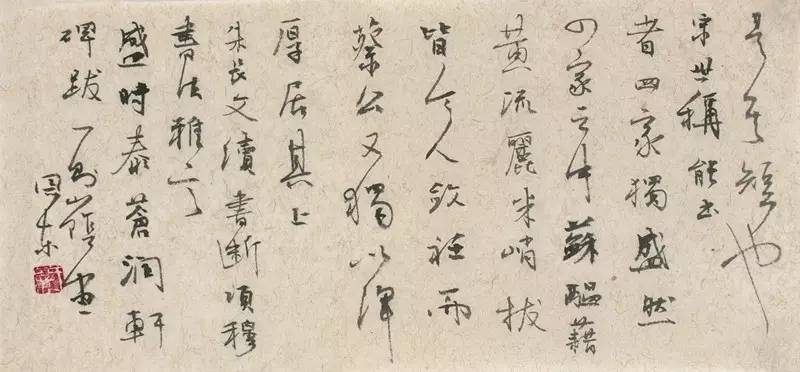 是其短也
宋世稱能書
者四家獨盛然
四家之中蘇醞藉
黃流麗米峭拔
皆令人斂衽而
蔡公又獨以渾
厚居其上
朱長文續書斷項穆
書法雅言
盛時泰蒼潤軒
碑跋一則山陰